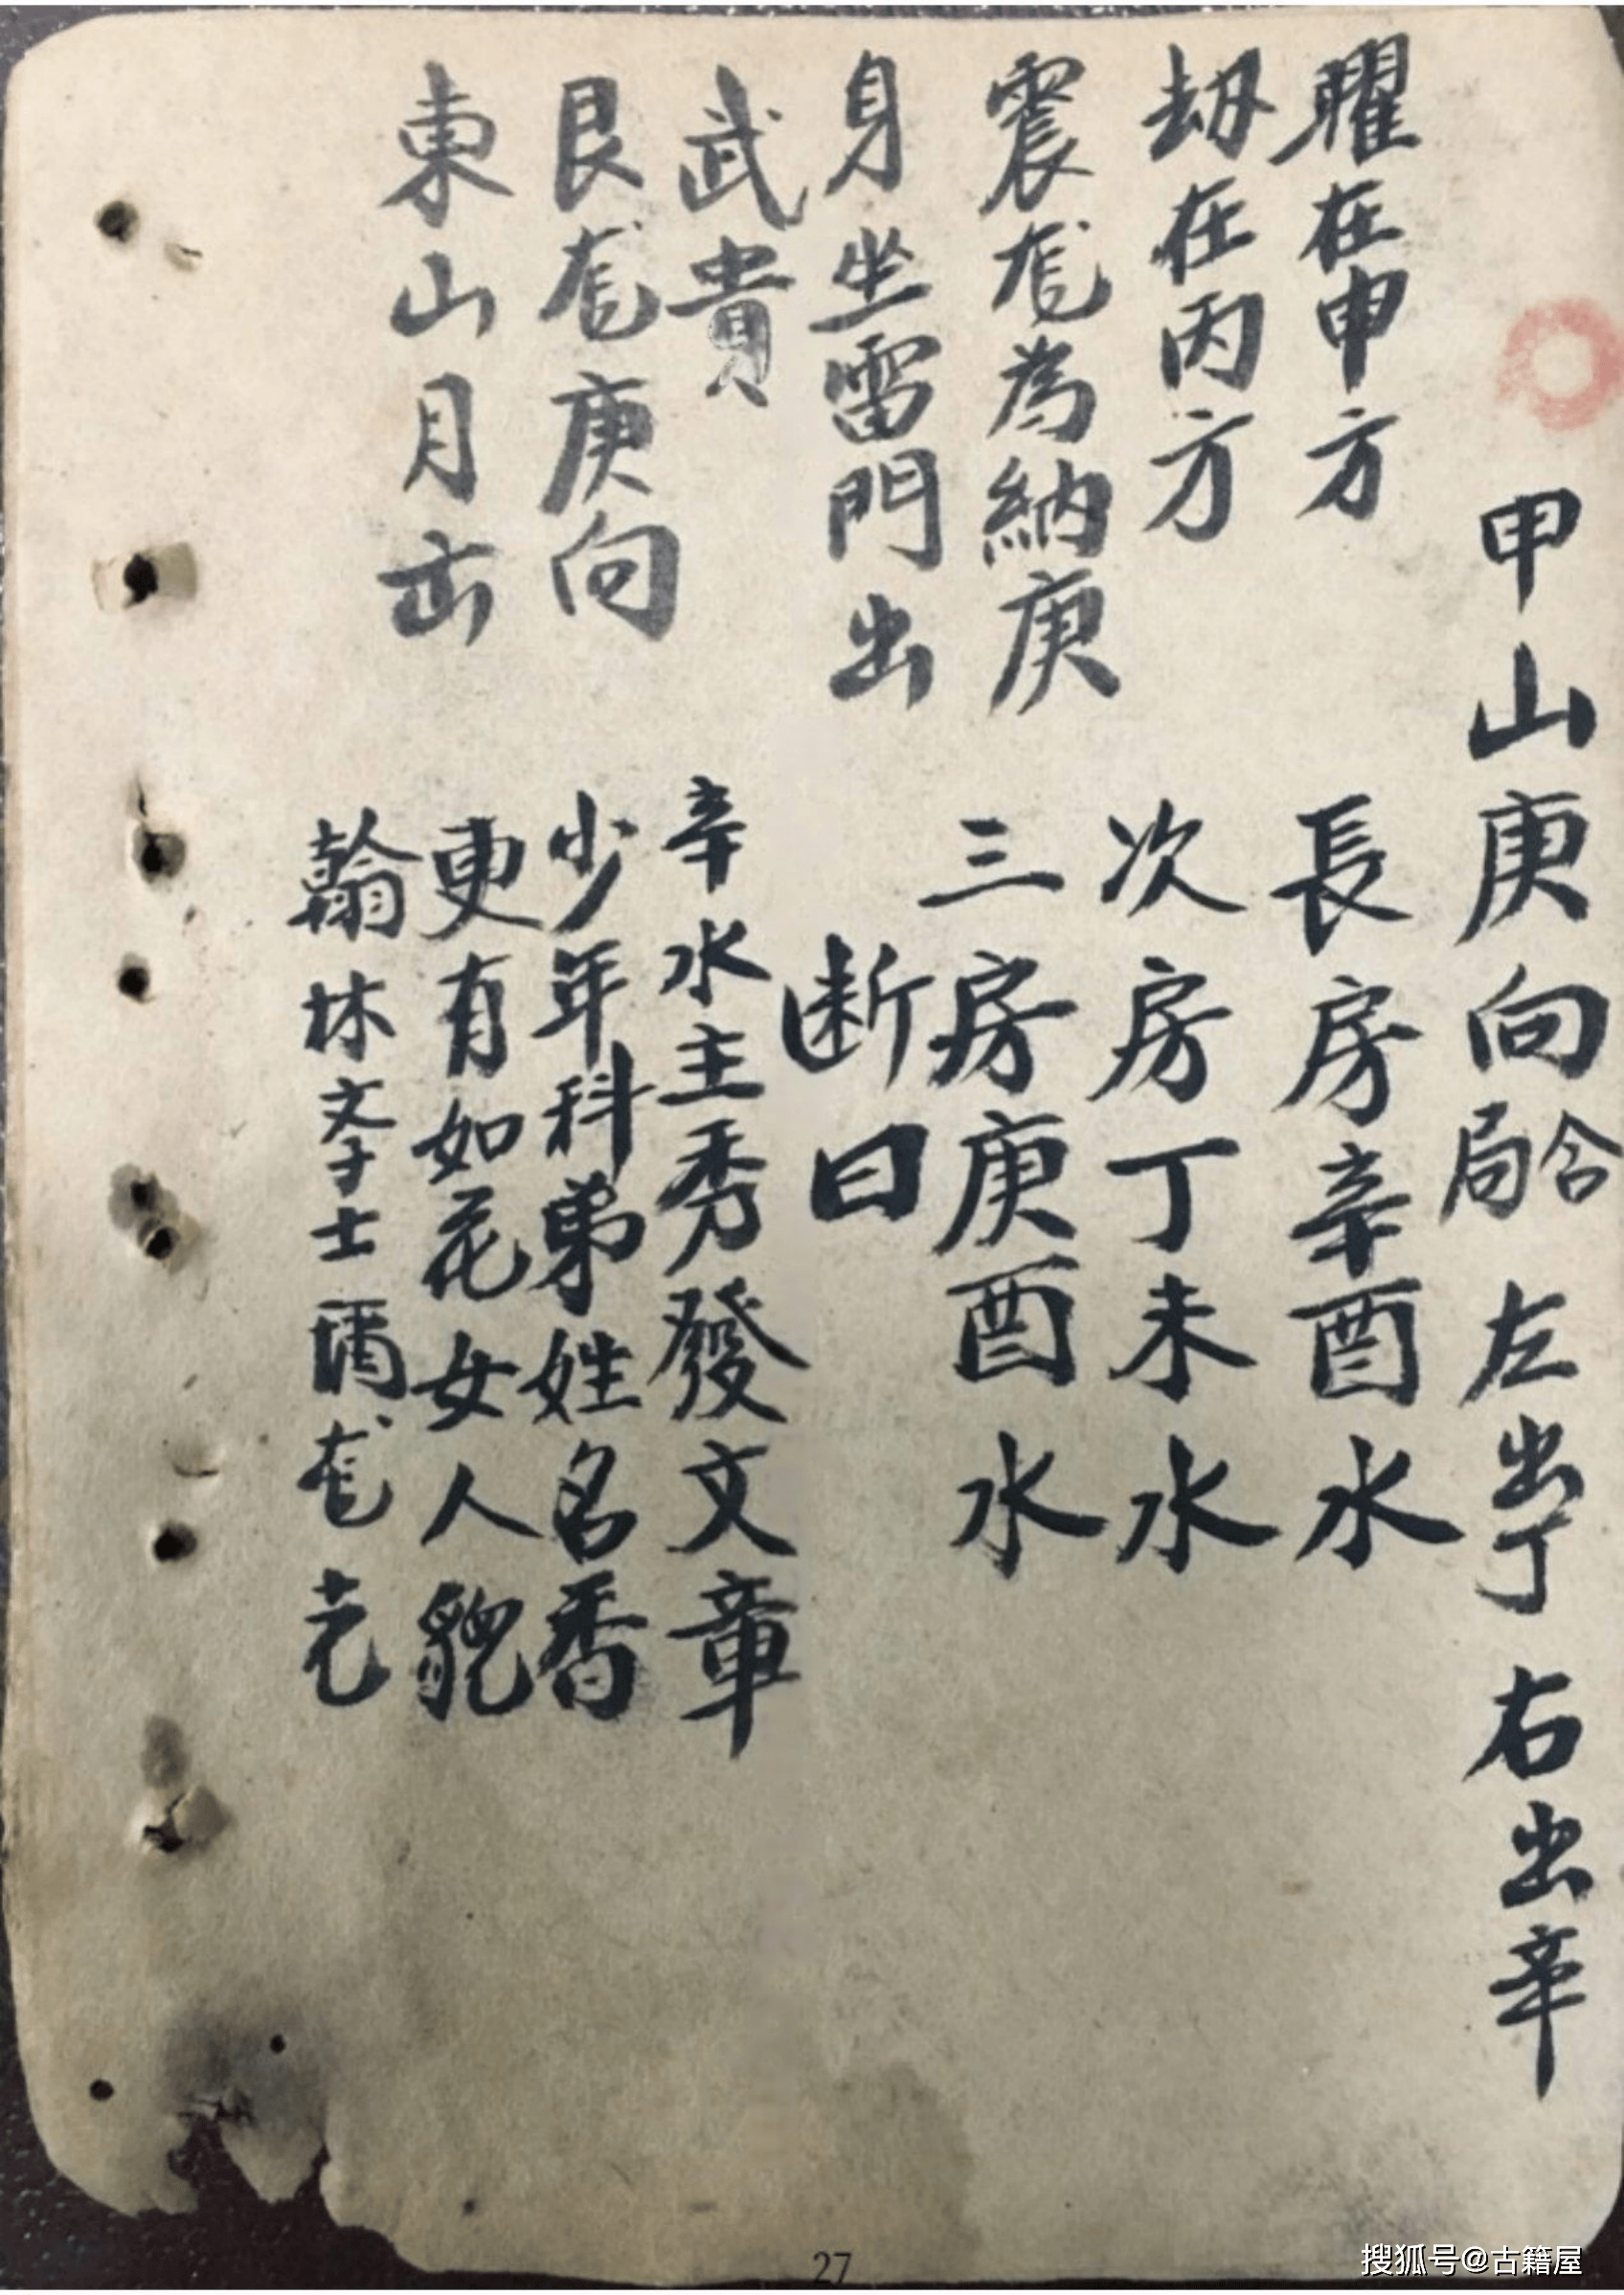 甲山庚向合局 左出丁 右出辛
曜在申方
劫在丙方
震龙為納庚
身坐雷門出
武貴
艮龙庚向
東山月出
長房辛酉水
次房丁未水
三房庚酉水
断曰
辛水主秀發文章
少年科弟姓名香
更有如花女人貌
翰林文孛士龙光
27
搜狐号@古籍屋